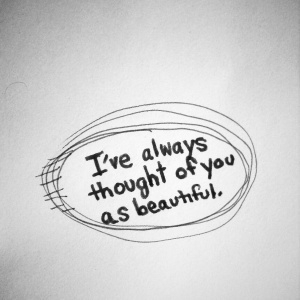 I've always
thought of you
as beautiful.